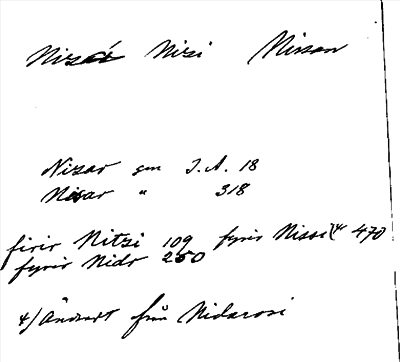 Nizar Nizi Nissan
Nizar gen J.A. 18
Nisar " 318
firir Nitzi 109 fyrir Nissi 4 470
fyrir Nidr 250
4/ Ändrart från Nidarosi